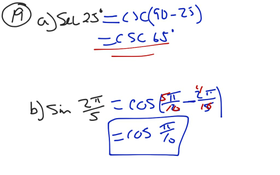 19 a) Sec 25° = CSC(90-25)
= CSC 65°
b) Sin 2π/5 = cos(5π/10 - 4π/10)
= cos π/10